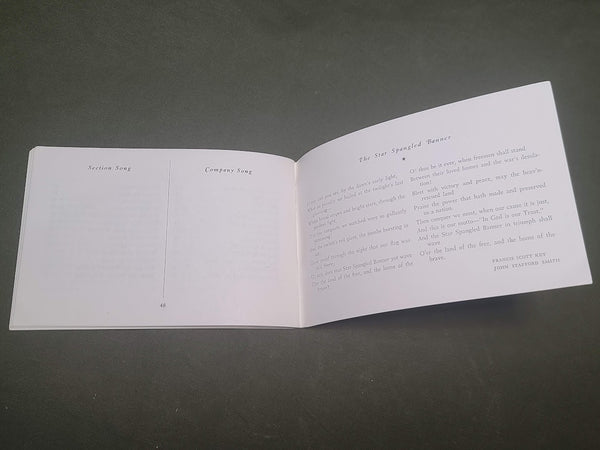 Section Song
Company Song
48
The Star Spangled Banner
you see, by the dawn's early light,
at the twilight's last
stripes and bright stars, through the
we watched were so gallantly
rocket's red glare, the bombs bursting in
through the night that our flag was
Star Spangled Banner yet wave
O'er the land of the free, and the home of the
O! thus be it ever, when freemen shall stand
Between their loved homes and the war's desola-
tion!
Blest with victory and peace, may the heav'n-
rescued land
Praise the power that hath made and preserved
us a nation.
Then conquer we must, when our cause it is just,
And this is our motto—"In God is our Trust."
And the Star Spangled Banner in triumph shall
wave
O'er the land of the free, and the home of the
brave.
FRANCIS SCOTT KEY
JOHN STAFFORD SMITH